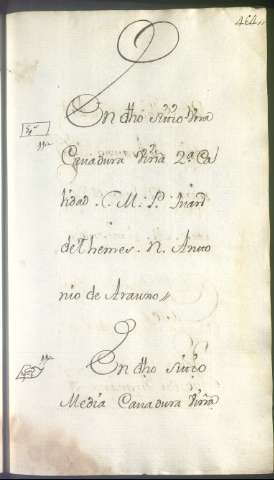 464
En dho sitio Una
Cavadura Viña 2ª Ca
lidad . C. M. P. Juan
de Themes . N. Anto
nio de Araujo
En dho sitio
Media Cavadura Viña